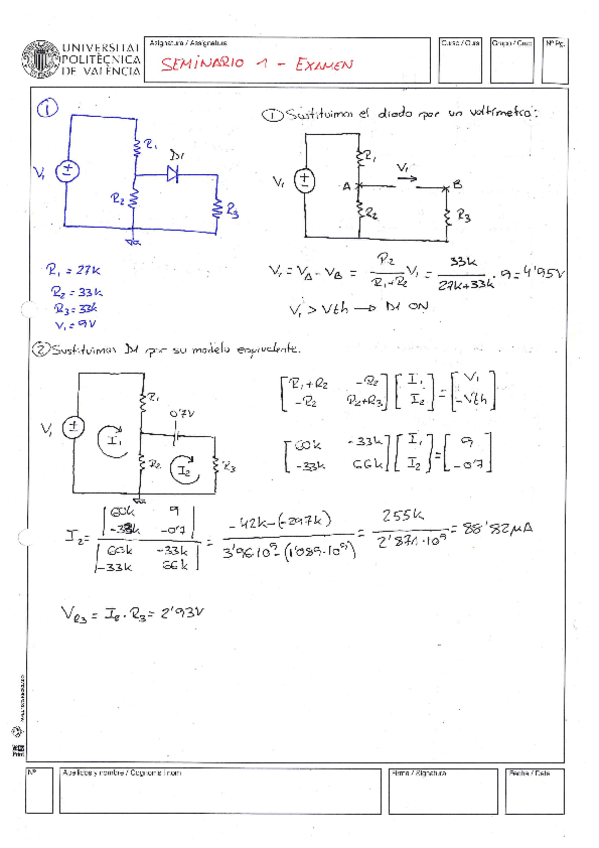 UNIVERSITAT
POLITÈCNICA
DE VALÈNCIA
Asignatura / Assignatura
SEMINARIO 1 - EXAMEN
Curso / Curs
Grupo / Grup
Nº Pg.
1
R1
D1
V1
R2
R3
R1 = 27k
R2 = 33k
R3 = 33k
V1 = 9V
1 Sustituimos el diodo por un voltímetro:
R1
V1
V1
A
B
R2
R3
V1 = VA - VB = R2/(R1+R2) V1 = 33k/(27k+33k) · 9 = 4'95V
V1 > Vth → D1 ON
2 Sustituimos D1 por su modelo equivalente.
R1
0'7V
V1
I1
R2
I2
R3
[R1+R2 -R2] [I1] = [V1]
[-R2 R2+R3] [I2] = [-Vth]
[60k -33k] [I1] = [9]
[-33k 66k] [I2] = [-0'7]
I2 = |60k 9; -33k -0'7| / |60k -33k; -33k 66k| = -42k-(-297k) / 3'96·10⁹-(1'089·10⁹) = 255k / 2'871·10⁹ = 88'82μA
VR3 = I2 · R3 = 2'93V
Nº
Apellidos y nombre / Cognoms i nom
Firma / Signatura
Fecha / Data